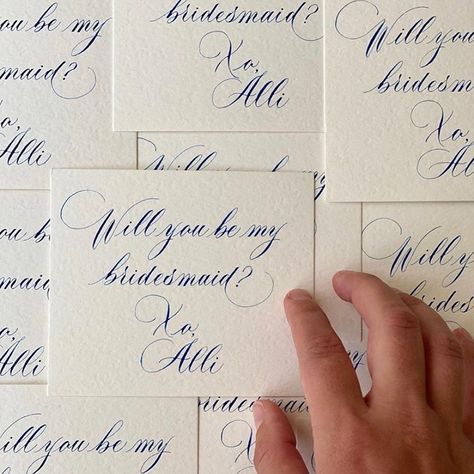 you be my
smaid?
Xo,
Alli
bridesmaid?
Xo,
Alli
Will you
bridesmaid
Xo,
Alli
Will you be my
bridesmaid?
Xo,
Alli
Will you be my
Will
brides
Alli
bridesmaid?
Will you be my